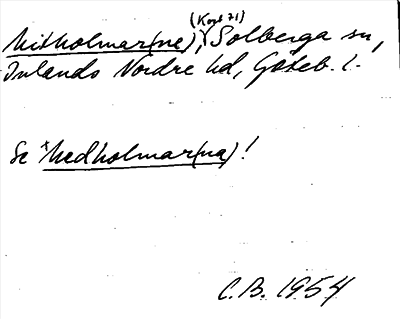 (Kart 71)
Mitholmar(ne), Solberga sn,
Inlands Nordre hd, Göteb. l.
Se *Medholmar(na)!
C.B. 1954